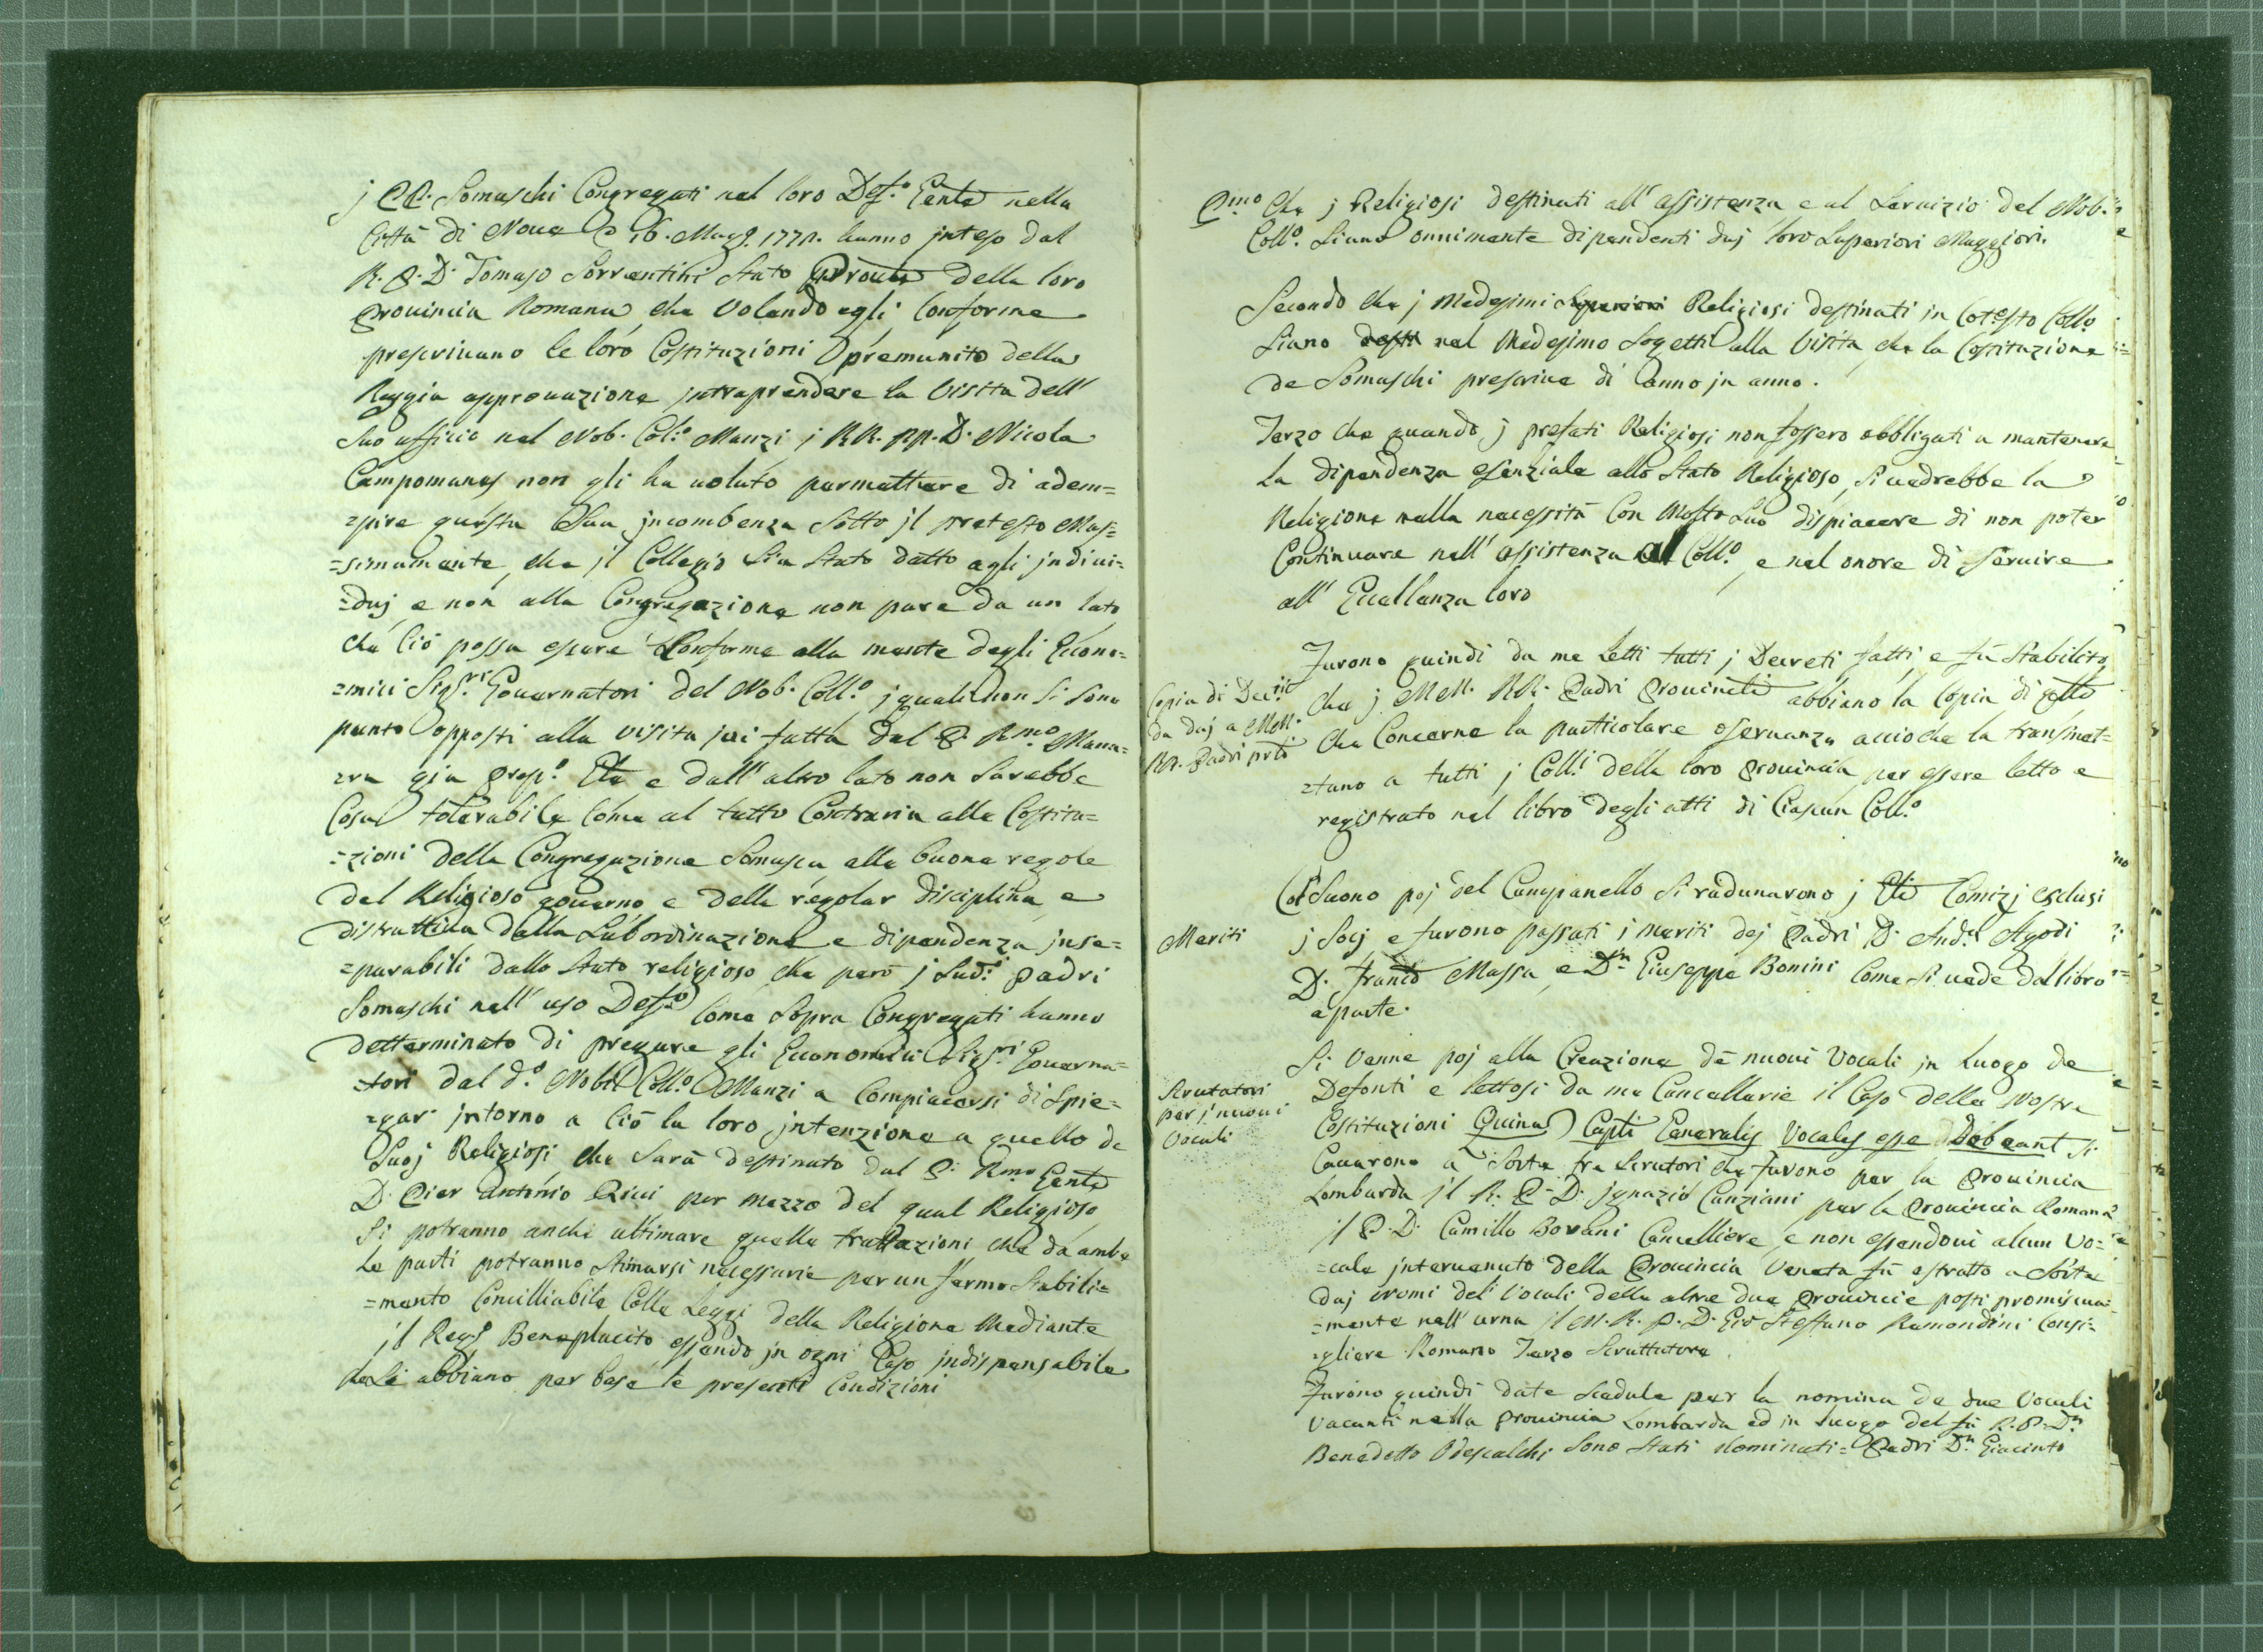 j PP. Somaschi Congregati nel loro Def.º Genle nella
Città di Nove @ 16. Magg. 1771. hanno inteso dal
R. P. D. Tomaso Sorrentini Stato Prõvle della loro
Provincia Romana, che Volendo egli Conforme
prescrivano le loro Costituzioni premunito della
Reggia approvazione intraprendere la Visita dell'
Suo ufficio nel Nob. Col.º Manzi j RR. pp. D. Nicola
Campomanes non gli ha voluto permettere di adem=
=pire questa Sua jncombenza Sotto jl pretesto Mas=
=simamente, che jl Collegio Sia Stato datto agli jndivi=
=duj e non alla Congregazione non pare da un lato
che Ciò possa essere Conforme alla mente degli Econo=
=mici Sig.ri Governatori del Nob. Coll.º j quali non Si Sono
punto opposti alla visita jvi fatta dal P. Rmo Mana=
=ra gia Prep.º Gle e dall' altro lato non Sarebbe
Cosa tolerabile Come al tutto Contraria alle Costitu=
=zioni della Congregazione Somasca alle buone regole
del Religioso governo e della regolar disciplina e
distruttiva della Subordinazione e dipendenza jnse=
=parabili dallo Stato religioso che però j Sud.i Padri
Somaschi nell' uso Def.º Come Sopra Congregati hanno
detterminato di pregare gli Economici Sig.ri Governa=
=tori del d.º Nobil Coll.º Manzi a Compiacersi di Spie=
=gar jntorno a Ciò la loro jntenzione a quello de
Suoj Religiosi che Sarà destinato dal P. Rmo Genle
D. Pier Antonio Ricci per mezzo del qual Religioso
Si potranno anche ultimare quelle trattazioni che da ambe
le parti potranno Stimarsi necessarie per un fermo Stabili=
=mento Concilliabile Colle Leggi della Religione Mediante
jl Reg.º Beneplacito, essendo jn ogni Caso jndispensabile
che Si abbiano per base le presenti Condizioni
Pmo Che j Religiosi destinati all' assistenza e al Servizio del Nob.
Coll.º Siano onnimente dipendenti daj loro Superiori Maggiori.
Secondo che j Medesimi Superiori Religiosi destinati jn Cotesto Coll.º
Siano nel Medesimo Sogetti alla Visita, che la Costituzione
de Somaschi prescrive di anno jn anno.
Terzo che quando j prefati Religiosi non fossero obbligati a mantenere
la dipendenza esenziale allo Stato Religioso, Si vedrebbe la
Religione nella necessità Con Molto Suo dispiacere di non poter
Continuare nell' assistenza al Coll.º, e nel onore di Servire
all' Eccellenza loro
Furono quindi da me Letti tutti j Decreti fatti, e fù Stabilito,
Copia di Dec.
da daj a MM.
RR. Padri prli
che j MM. RR. Padri Provinciali abbiano la Copia di
Che Concerne la particolare oservanza accioche la trasmet=
=tano a tutti j Coll.i della loro Provincia per essere letto e
registrato nel libro degli atti di Ciascun Coll.º
Col Suono poj del Campanello Si radunarono j Gli Comizj esclusi
Meriti
j Socj e furono passati j Meriti dej Padri D. And.a Agodi
D. Franco Massa, e Dn Giuseppe Bonini Come Si vede dal libro
a parte.
Scrutatori
per j nuovi
Vocali
Si Venne poj alla Creazione de nuovi Vocali jn Luogo de
Defonti e lettosi da me Cancellarie il Capo della Nostre
Costituzioni Quinas Capli Generalis Vocales esse Debeant Si
Cavarono a Sorte tre Scrutori che furono per la Provincia
Lombarda jl R. P. D. jgnazio Canziani per la Provincia Romana
jl P. D. Camillo Bovani Cancelliere, e non essendovi alcun Vo=
=cale jntervenuto della Provincia Veneta fù estratto a Sorte
daj Nomi deli Vocali delle altre due Provincie posti promiscua=
=mente nell' urna jl M. R. P. D. Gio Steffano Remondini Consi=
=gliere Romano Terzo Scruttatore.
Furono quindi date Scedule per la nomina de due Vocali
Vacanti nella Provincia Lombarda ed jn luogo del fù R. P. Dn
Benedetto Odescalchi Sono Stati Nominati= Padri Dn Giacinto